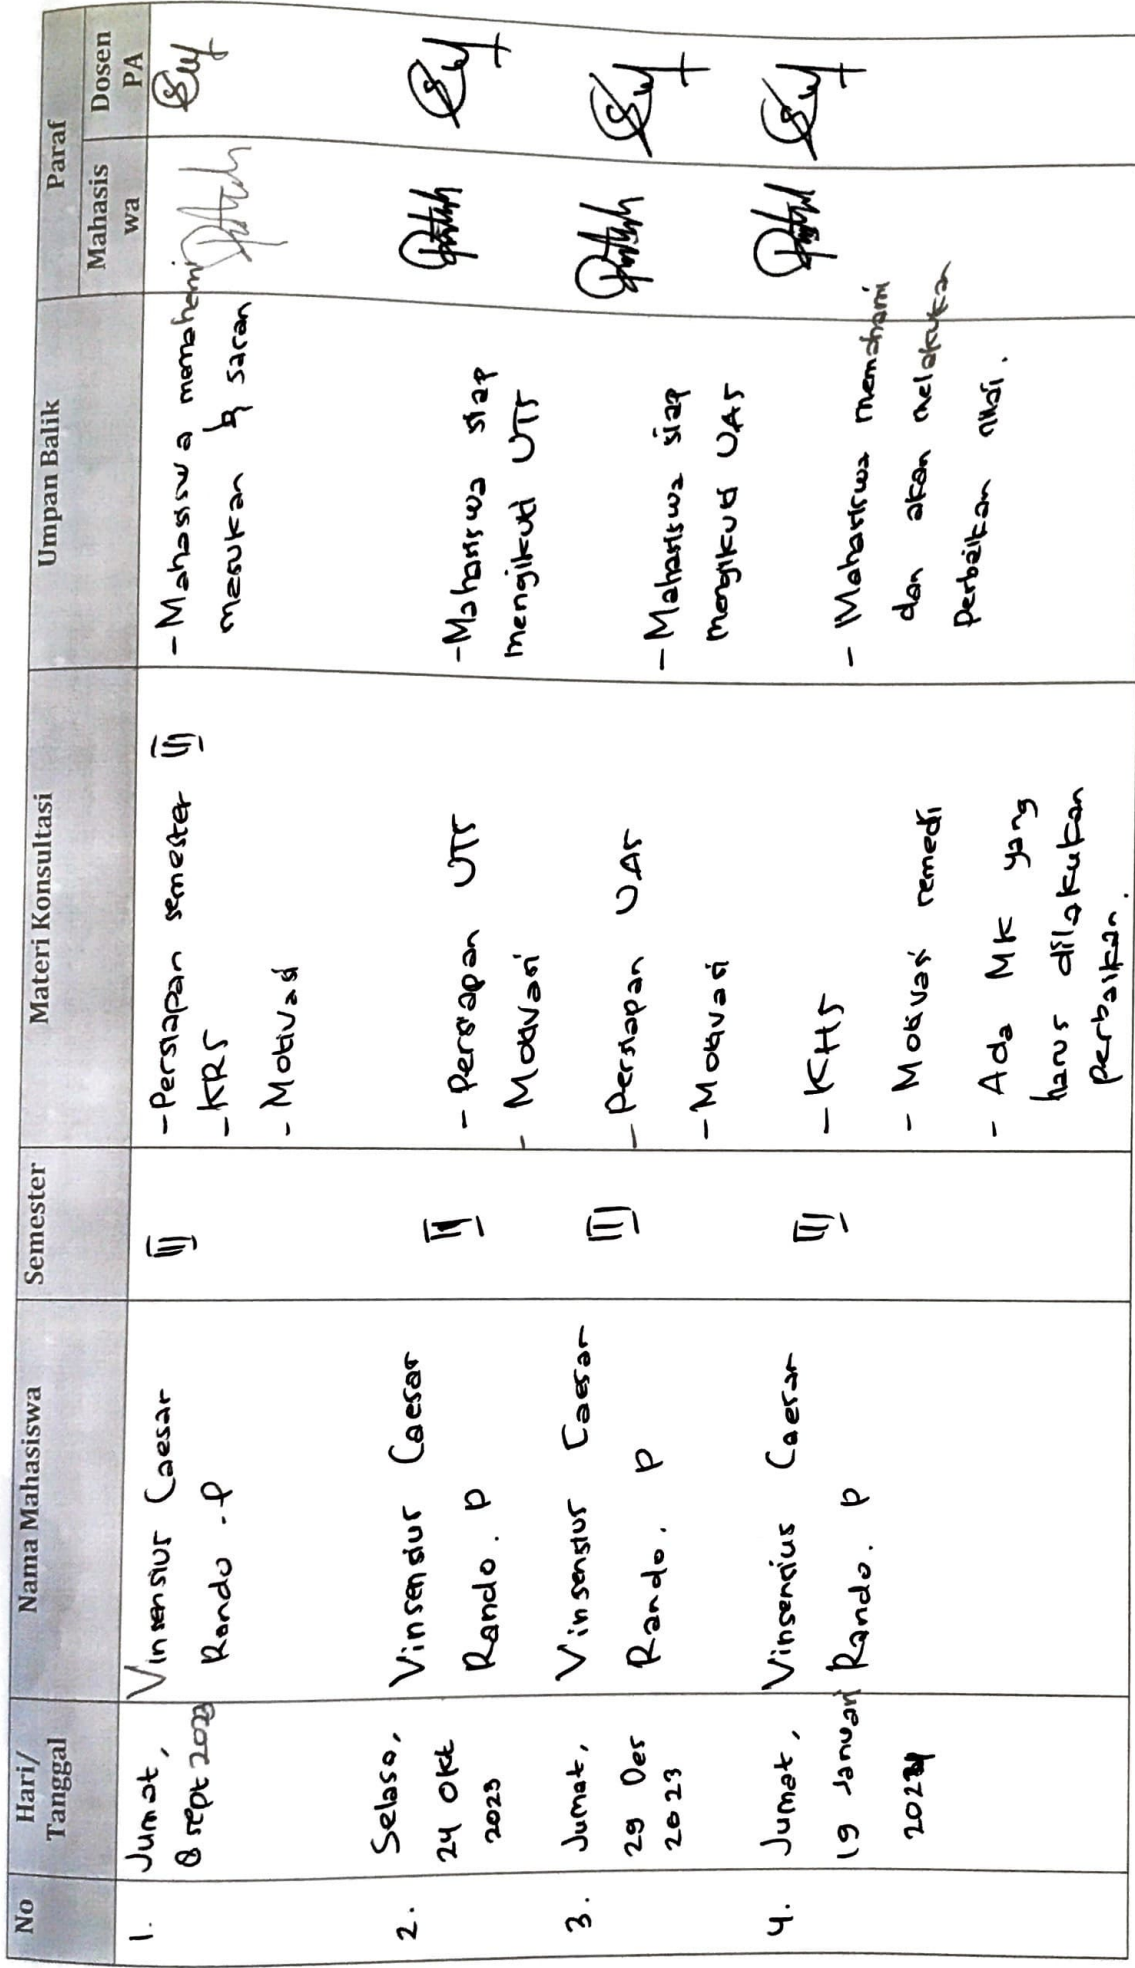 No
Hari/
Tanggal
Nama Mahasiswa
Semester
Materi Konsultasi
Umpan Balik
Paraf
Mahasis
wa
Dosen
PA
1.
Jumat,
8 sept 2023
Vinsensius Caesar
Rando . P
III
- Persiapan semester III
- KRS
- Motivasi
- Mahasiswa memahami
masukan & saran
2.
Selasa,
24 Okt
2023
Vinsensius Caesar
Rando. P
III
- Persiapan UTS
- Motivasi
- Mahasiswa siap
mengikuti UTS
3.
Jumat,
29 Des
2023
Vinsensius Caesar
Rando. P
III
- Persiapan UAS
- Motivasi
- Mahasiswa siap
mengikuti UAS
4.
Jumat,
19 Januari
2024
Vinsensius Caesar
Rando. P
III
- KHS
- Motivasi remedi
- Ada MK yang
harus dilakukan
perbaikan.
- Mahasiswa memahami
dan akan melakukan
perbaikan nilai.